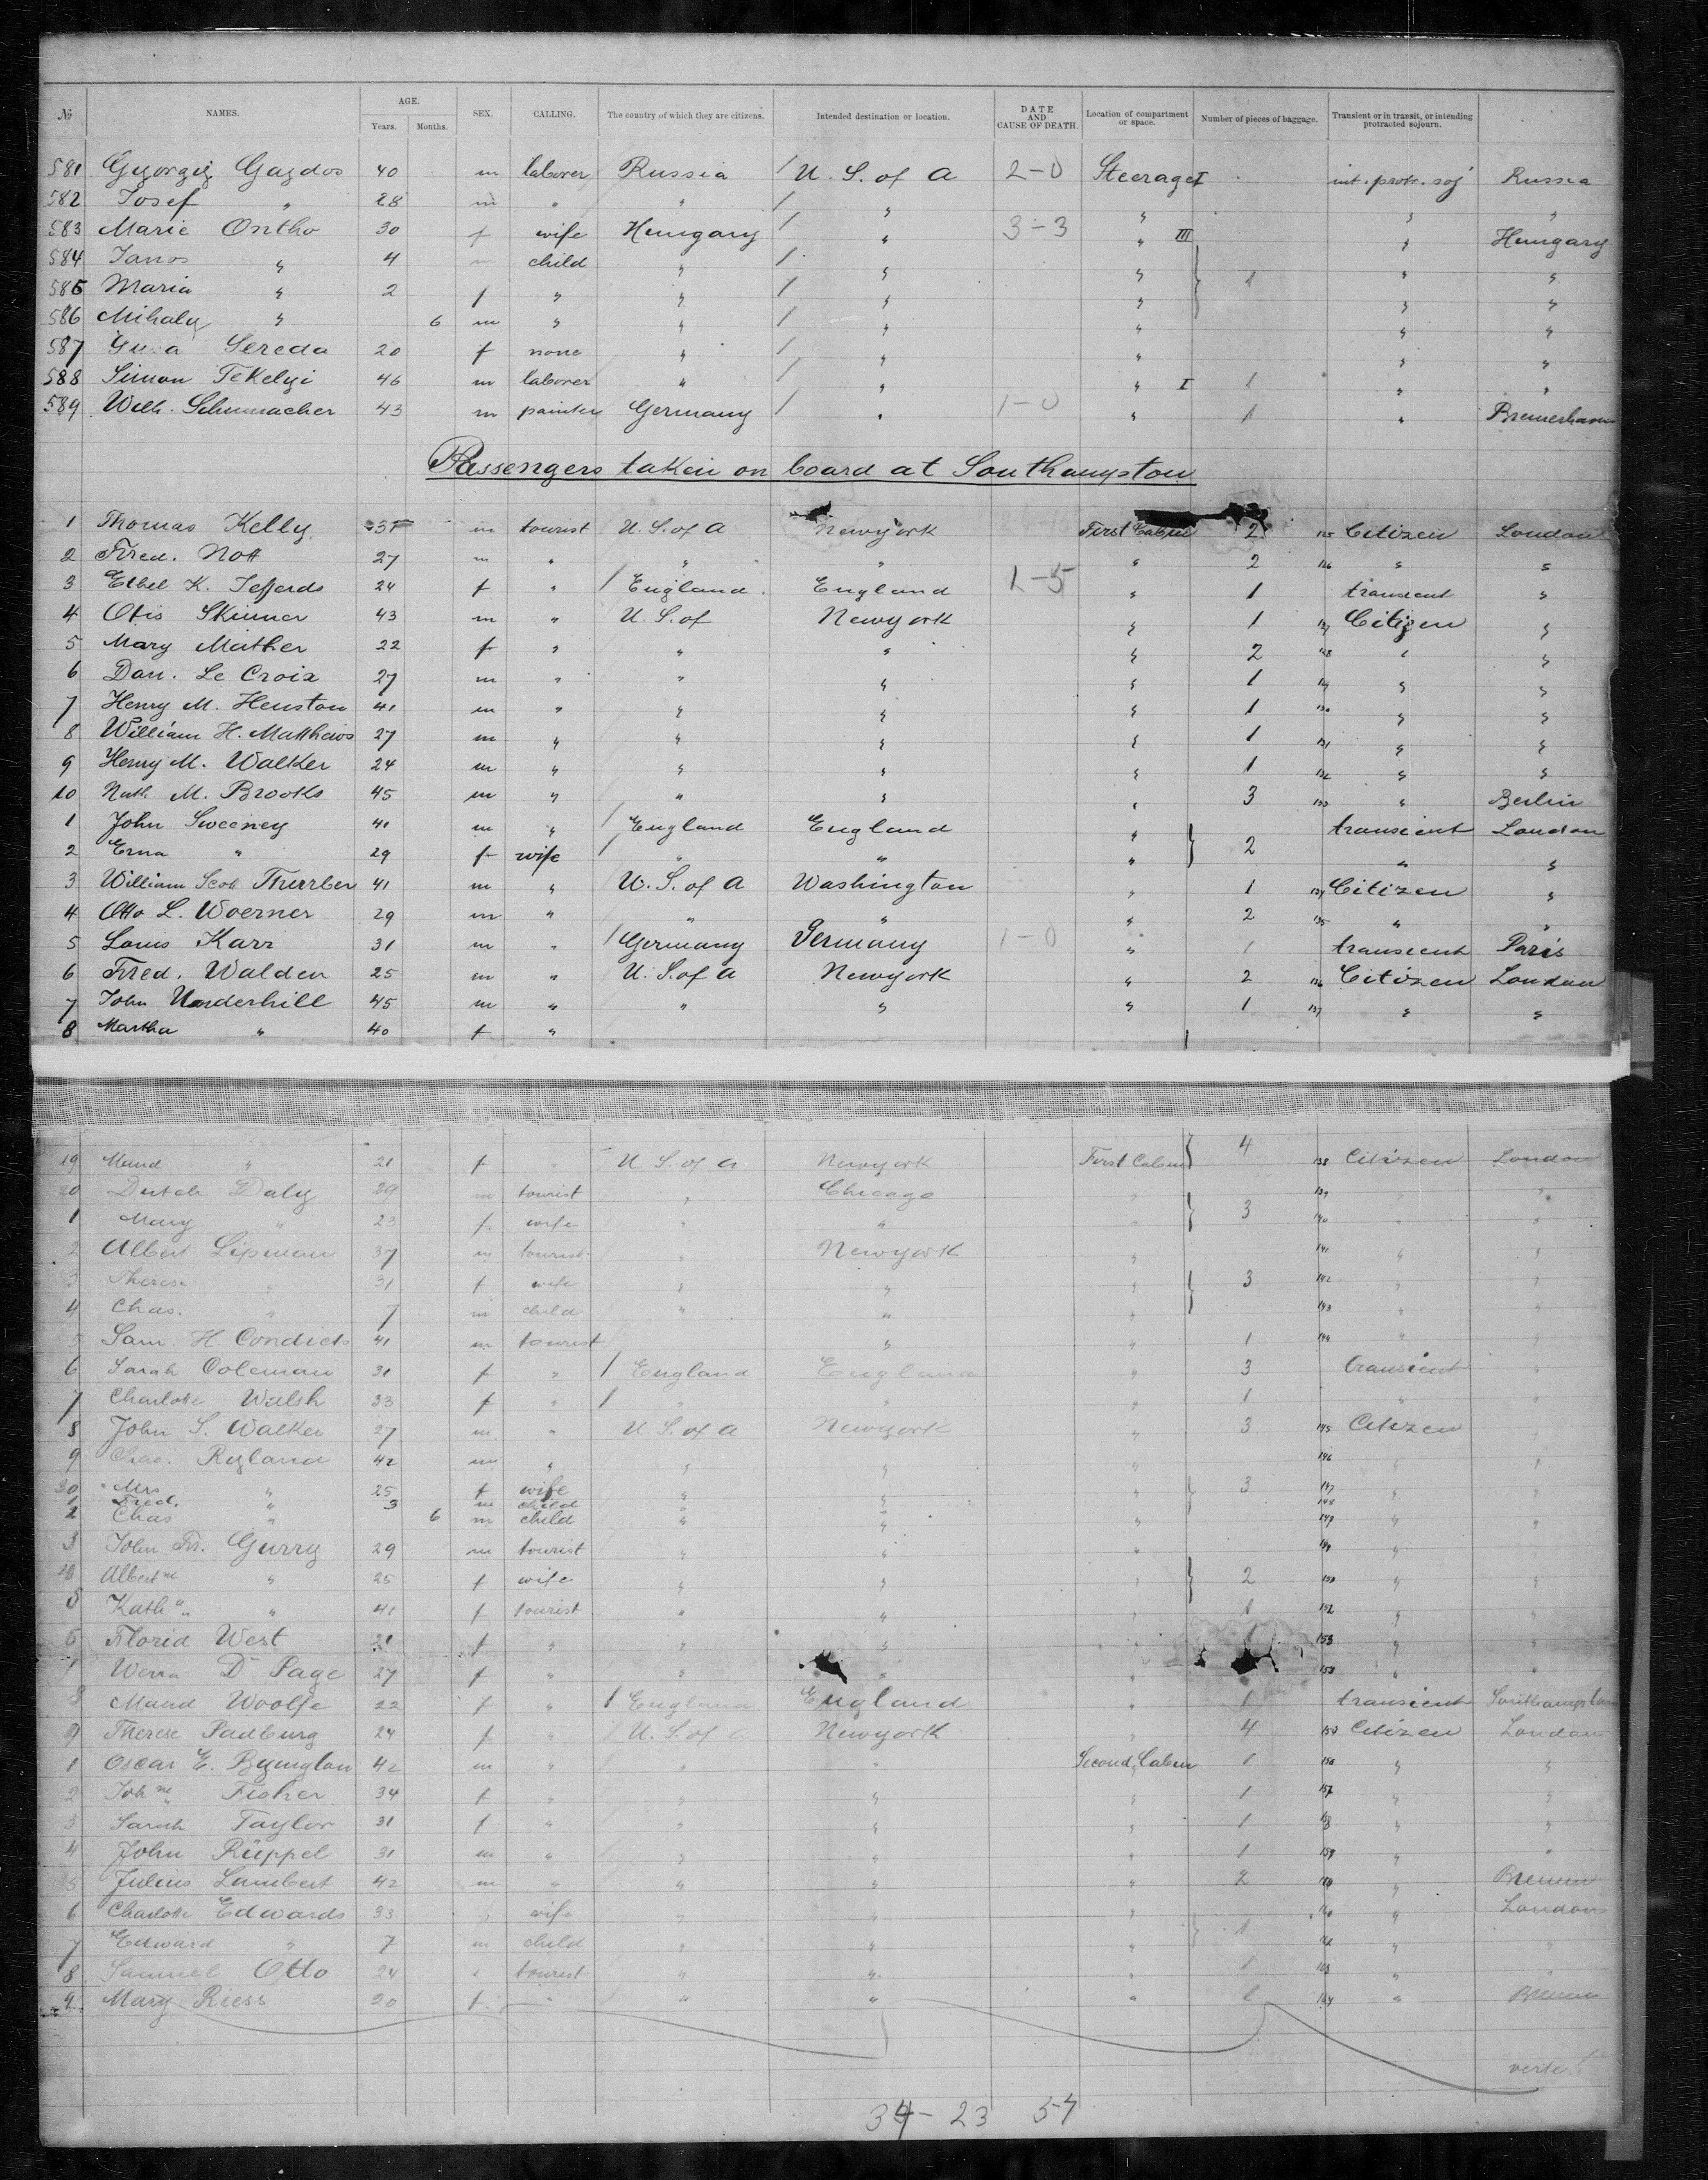 № NAMES. AGE. Years. Months. SEX. CALLING. The country of which they are citizens. Intended destination or location. DATE AND CAUSE OF DEATH. Location of compartment or space. Number of pieces of baggage. Transient or in transit, or intending protracted sojourn.
581 Gyorgij Gazdos 40 m laborer Russia / U. S. of A 2-0 Steerage I int. protr. soj Russia
582 Josef " 28 m " " / " " " "
583 Marie Ontko 30 f wife Hungary / " 3-3 " III " Hungary
584 Janos " 4 m child " / " " " "
585 Maria " 2 f " " / " " 1 " "
586 Mihaly " 6 m " " / " " " "
587 Sereda 20 f none " / " " " "
588 Simon Tekelyi 46 m laborer " / " " I 1 " "
589 Wilh. Schumacher 43 m painter Germany / " 1-0 " 1 " Bremerhaven
Passengers taken on board at Southampton
1 Thomas Kelly 31 m tourist U. S. of A Newyork First Cabin 2 125 Citizen London
2 Fred. Nott 27 m " " " " 2 126 " "
3 Ethel K. Jefferds 24 f " / England England 1-5 " 1 transient "
4 Otis Skinner 43 m " U. S. of Newyork " 1 127 Citizen "
5 Mary Mather 22 f " " " " 2 128 " "
6 Dan. Le Croix 27 m " " " " 1 129 " "
7 Henry M. Heuston 41 m " " " " 1 130 " "
8 William H. Matthews 27 m " " " " 1 131 " "
9 Henry M. Walker 24 m " " " " 1 132 " "
10 Nath M. Brooks 45 m " " " " 3 133 " Berlin
1 John Sweeney 41 m " / England England " 2 transient London
2 Erna " 29 f wife / " " " " "
3 William Scob Thurber 41 m " U. S. of A Washington " 1 134 Citizen "
4 Otto L. Woerner 29 m " " " " 2 135 " "
5 Louis Karr 31 m " / Germany Germany 1-0 " 1 transient Paris
6 Fred. Walden 25 m " U. S. of A Newyork " 2 136 Citizen London
7 John Underhill 45 m " " " " 1 137 " "
8 Martha " 40 f "
19 Maud " 21 f " U S. of A Newyork First Cabin 4 138 Citizen London
20 Dutch Daly 29 m tourist " Chicago " 3 139 " "
1 Mary " 23 f wife " " " 140 " "
2 Albert Lipman 37 m tourist " Newyork " 141 " "
3 Therese " 31 f wife " " " 3 142 " "
4 Chas. " 7 m child " " " 143 " "
5 Sam. H Condict 41 m tourist " " 1 144 " "
6 Sarah Coleman 31 f " / England England " 3 transient "
7 Charlotte Walsh 33 f " / " " " 1 " "
8 John S. Walker 27 m " U. S. of A Newyork " 3 145 Citizen
9 Chas. Ryland 42 m " " " " 146 " "
30 Mrs " 25 f wife " " " 3 147 " "
1 Fred. " 3 m child " " 148
2 Chas " 6 m child " " " 149 " "
3 John Fr. Gurry 29 m tourist " " " " "
4 Albertne " 25 f wife " " " 2 150 " "
5 Kath a " 41 f tourist " " " 1 152 " "
6 Florid West 21 f " " " " 153 " "
7 Werra D Page 27 f " " " " " "
8 Maud Woolfe 22 f " / England England " 1 transient Southampton
9 Therese Padburg 24 f " U. S. of a Newyork " 4 Citizen London
1 Oscar E. Byington 42 m " " " Second Cabin 1 156 " "
2 Joh ne Fisher 34 f " " " " 1 157 " "
3 Sarah Taylor 31 f " " " " 1 158 " "
4 John Rüppel 31 m " " " " 1 159 " "
5 Julius Lambert 42 m " " " " 2 160 " Bremen
6 Charlotte Edwards 33 f wife " " " 1 " London
7 Edward " 7 m child " " " 162 " "
8 Samuel Otto 24 tourist " " " 1 163 " "
9 Mary Riess 20 f " " " " 1 164 " Bremen
verte!
34-23 57